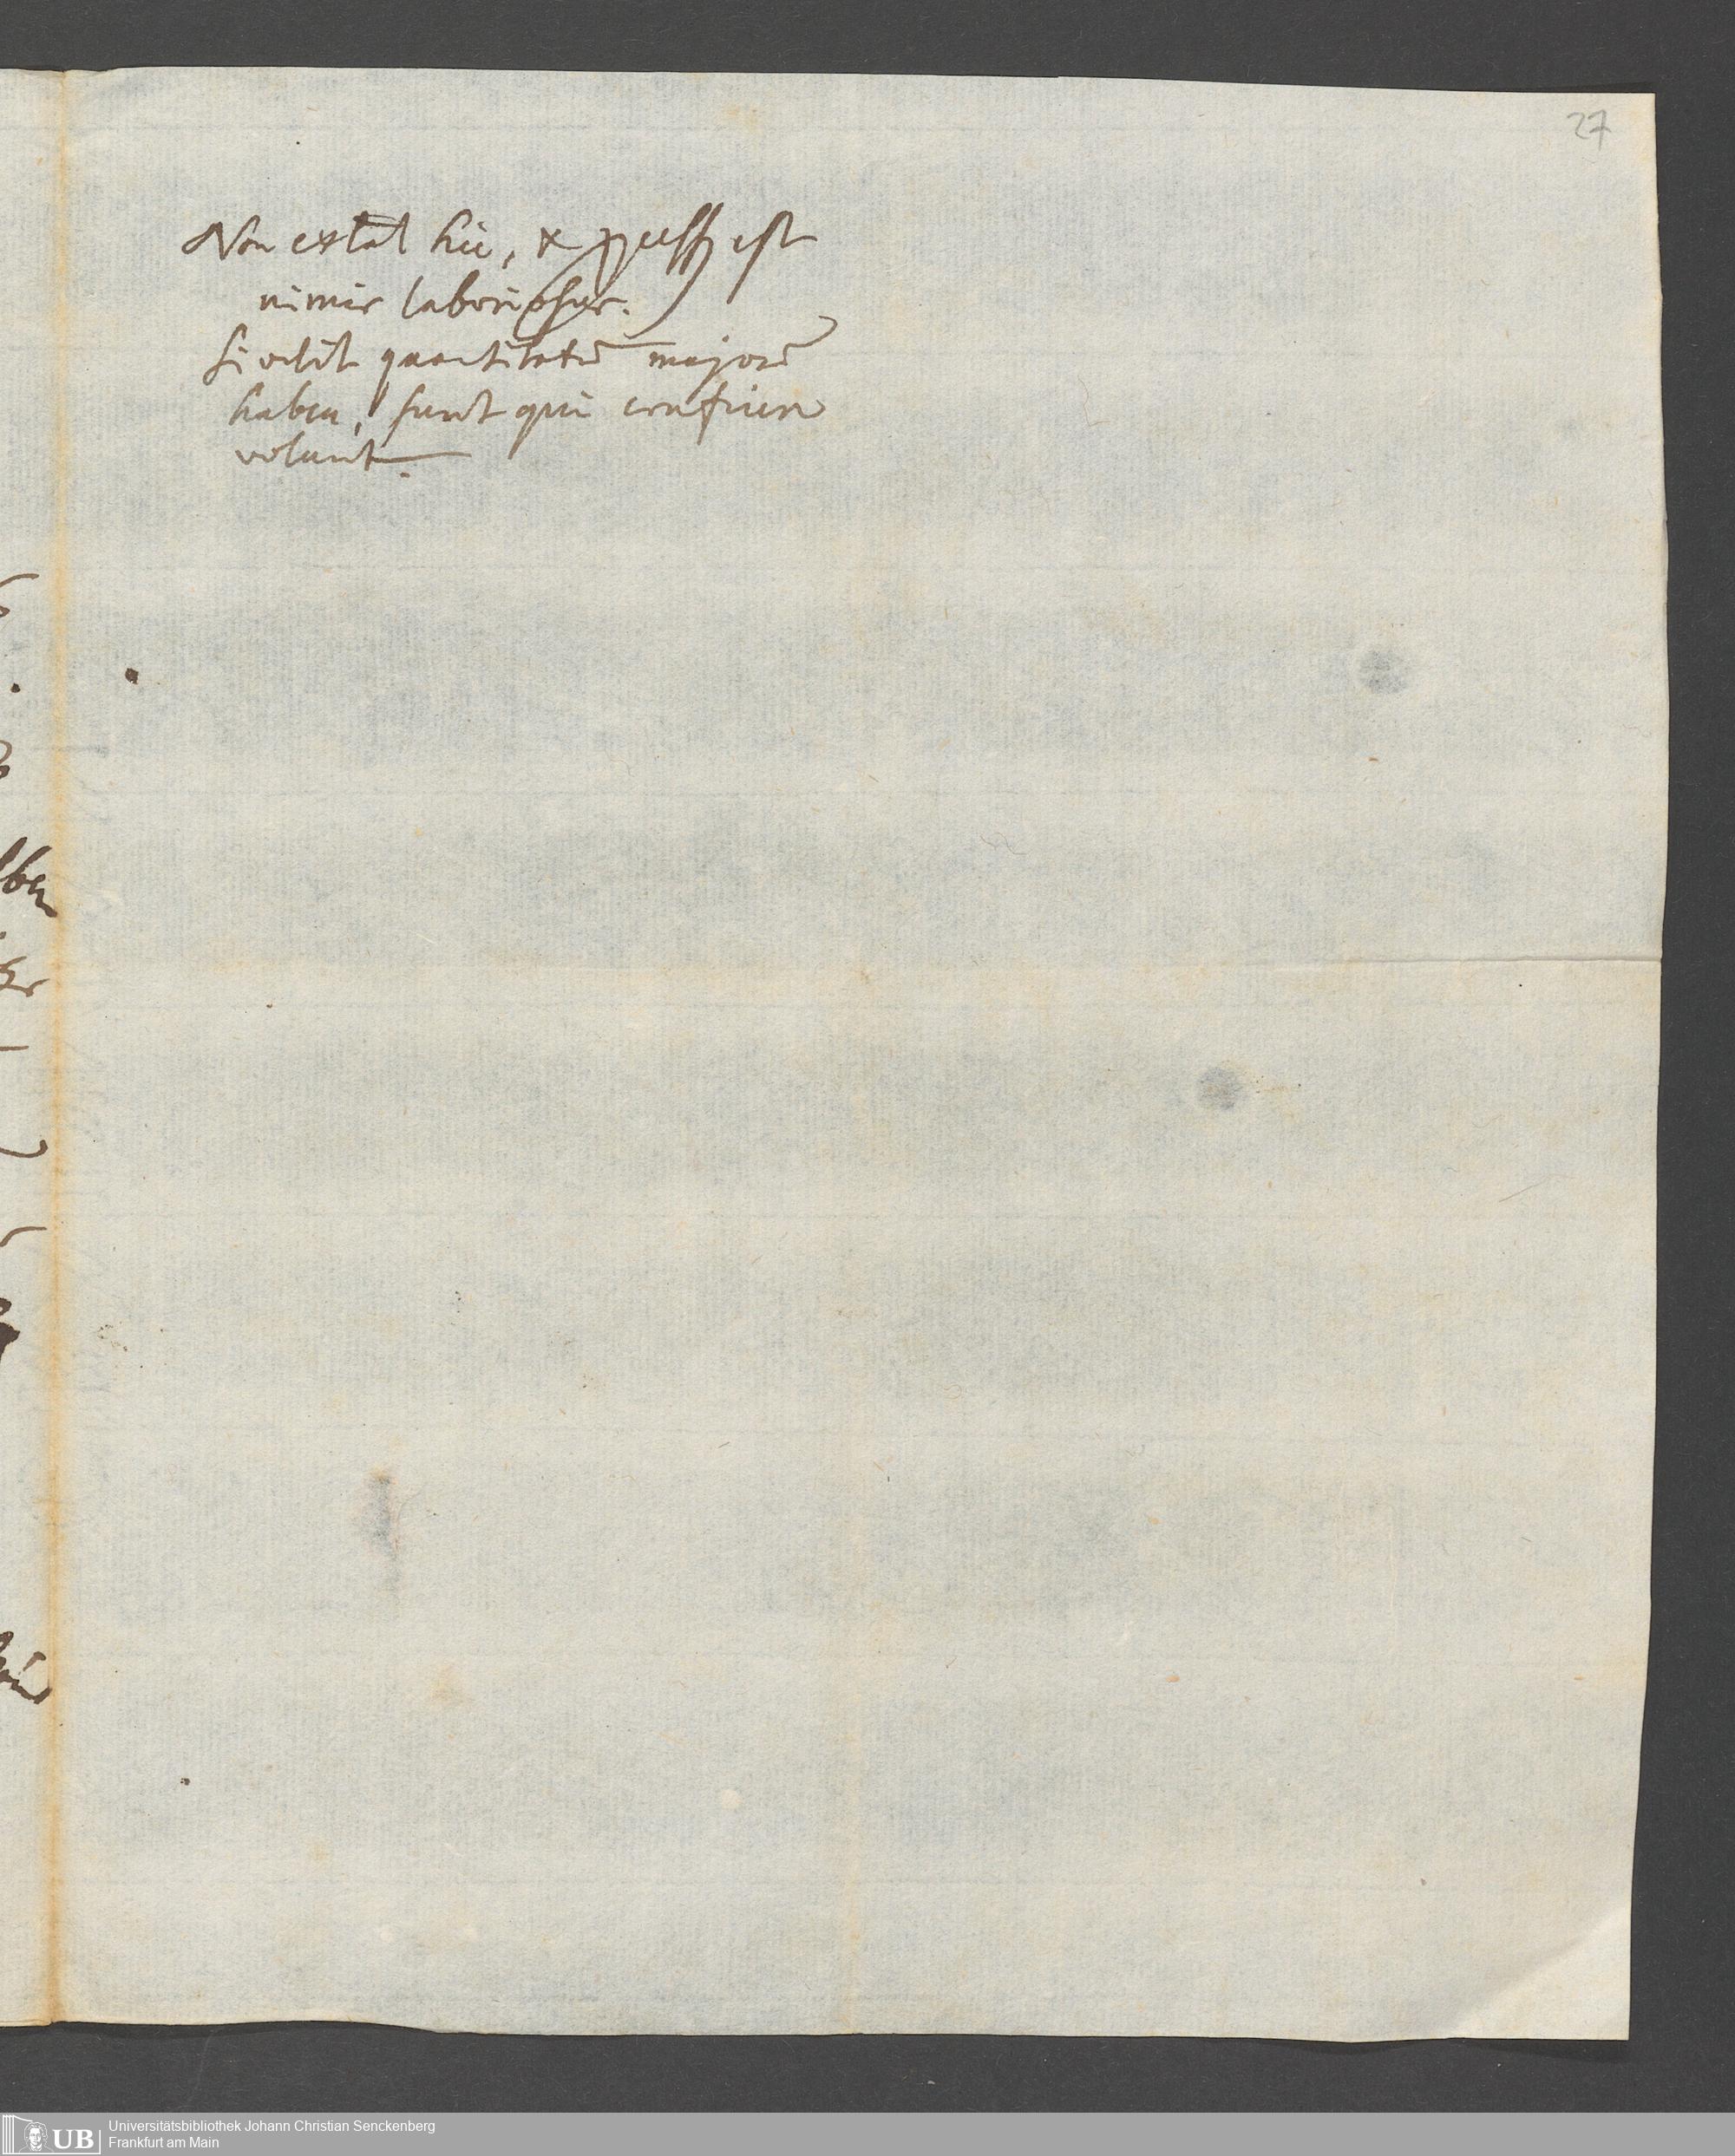 27
Non extat hic, & processus est
nimis laboriosus.
Si velit quantitatē majorē
habere, sunt qui conficere
volunt.
lben
UB
Universitätsbibliothek Johann Christian Senckenberg
Frankfurt am Main